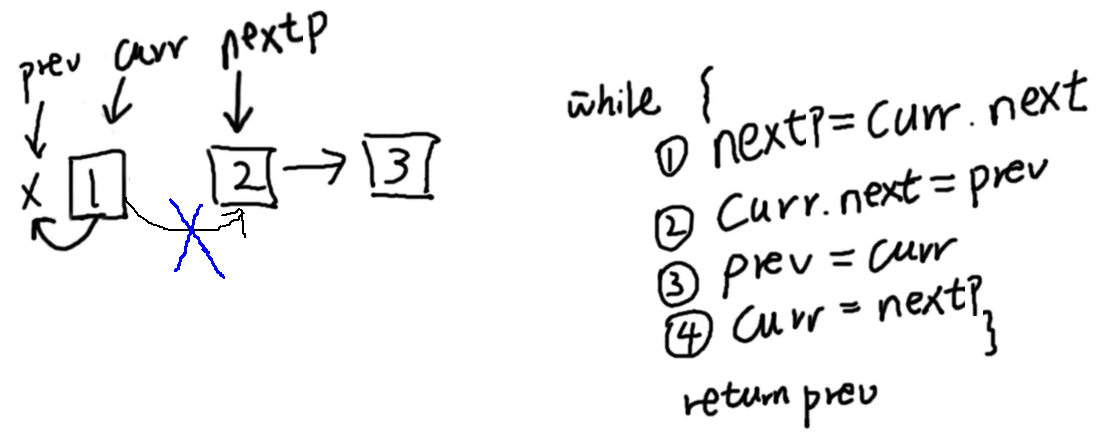 prev curr nextp
X 1 2 3
while {
① nextp = curr.next
② curr.next = prev
③ prev = curr
④ curr = nextp
}
return prev